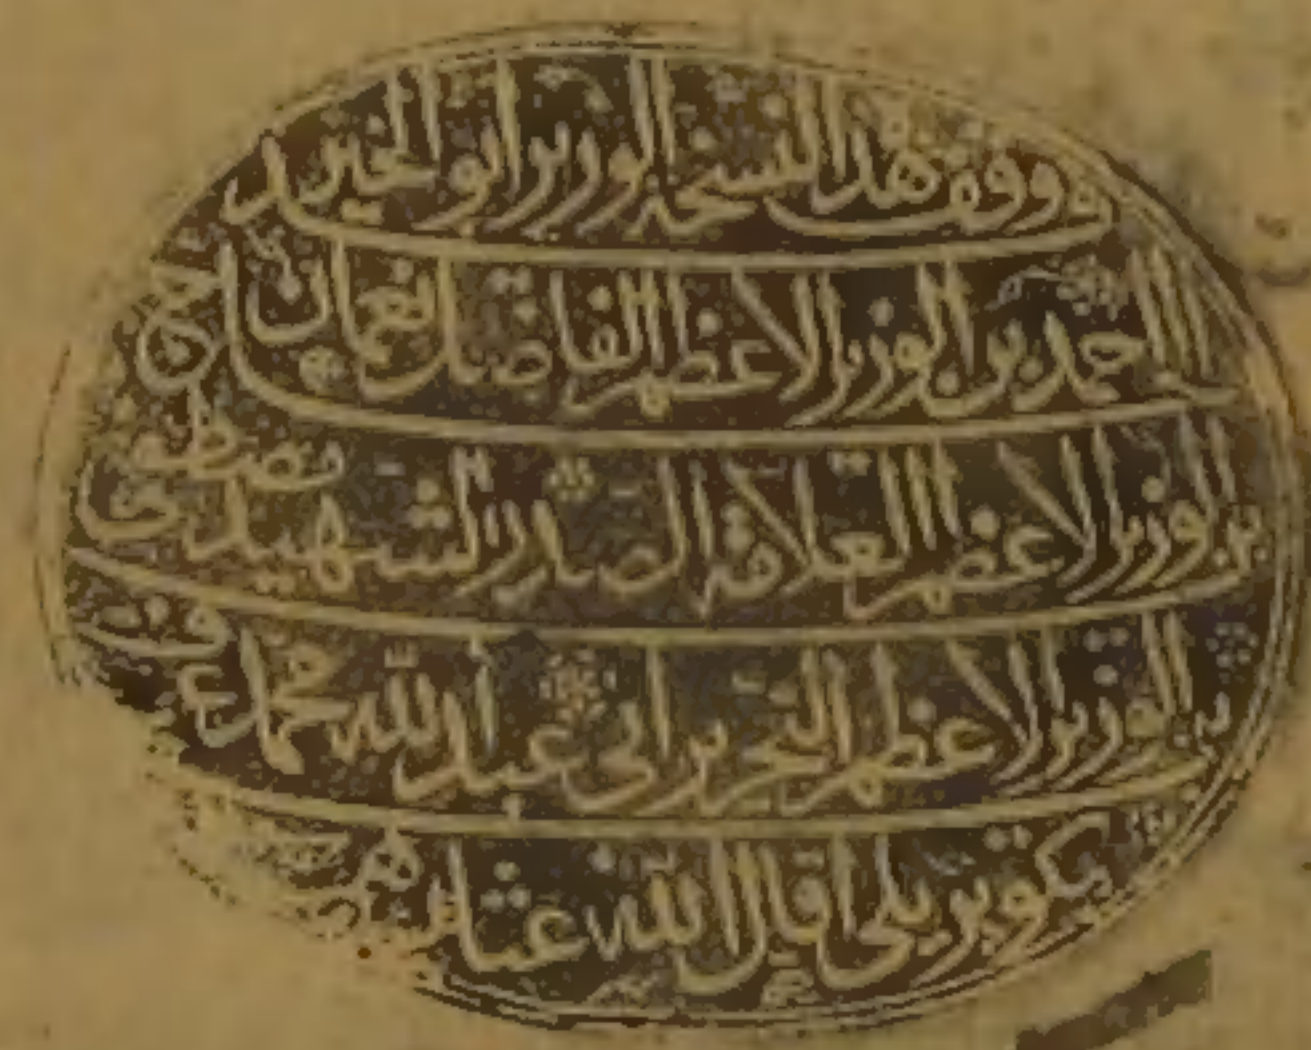 وقف هذا النسخة الوزير ابو الخير
احمد بن الوزير الاعظم الفاضل نعمان
بن الوزير الاعظم العلامة الصدر الشهيد مصطفى
بن الوزير الاعظم النحرير ابي عبد الله محمد عرف
بكوپريلى اقال الله عثارهم